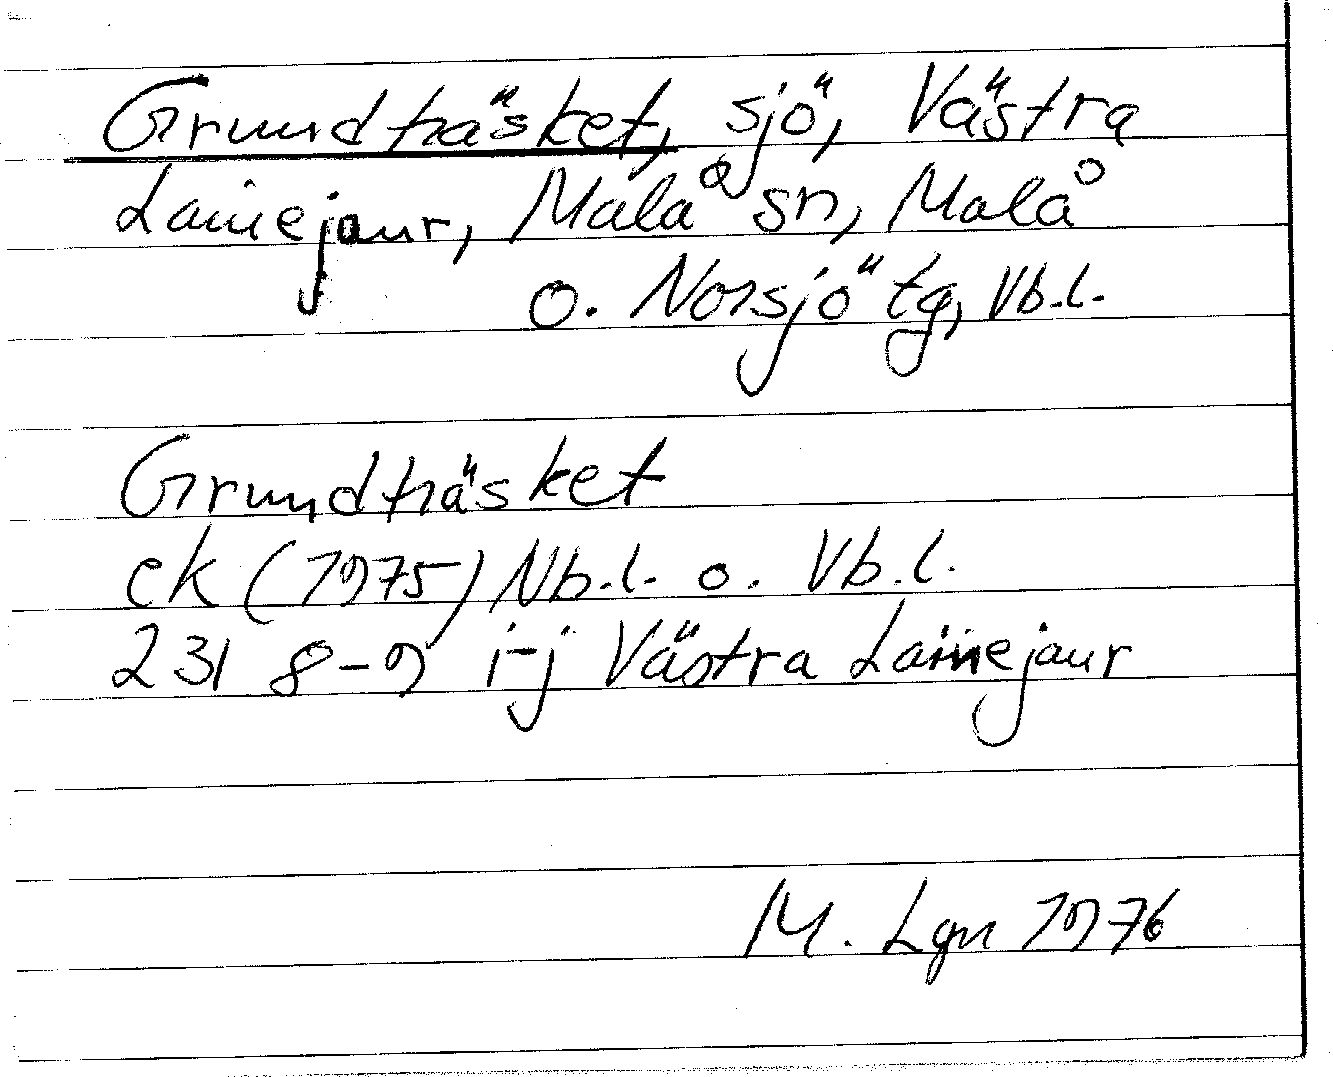 Grundträsket, sjö, Västra
Lainejaur, Malå sn, Malå
o. Norsjö tg, Vb.l.
Grundträsket
ek (1975) Nb.l. o. Vb.l.
23I 8-9 i-j Västra Lainejaur
M. Lgn 1976